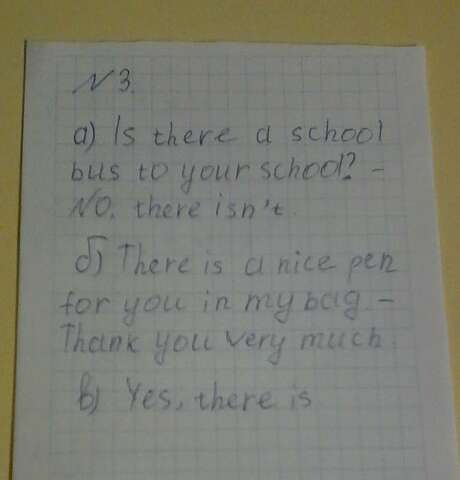 № 3.
а) Is there a school
bus to your school? -
NO, there isn't.
б) There is a nice pen
for you in my bag -
Thank you very much.
в) Yes, there is